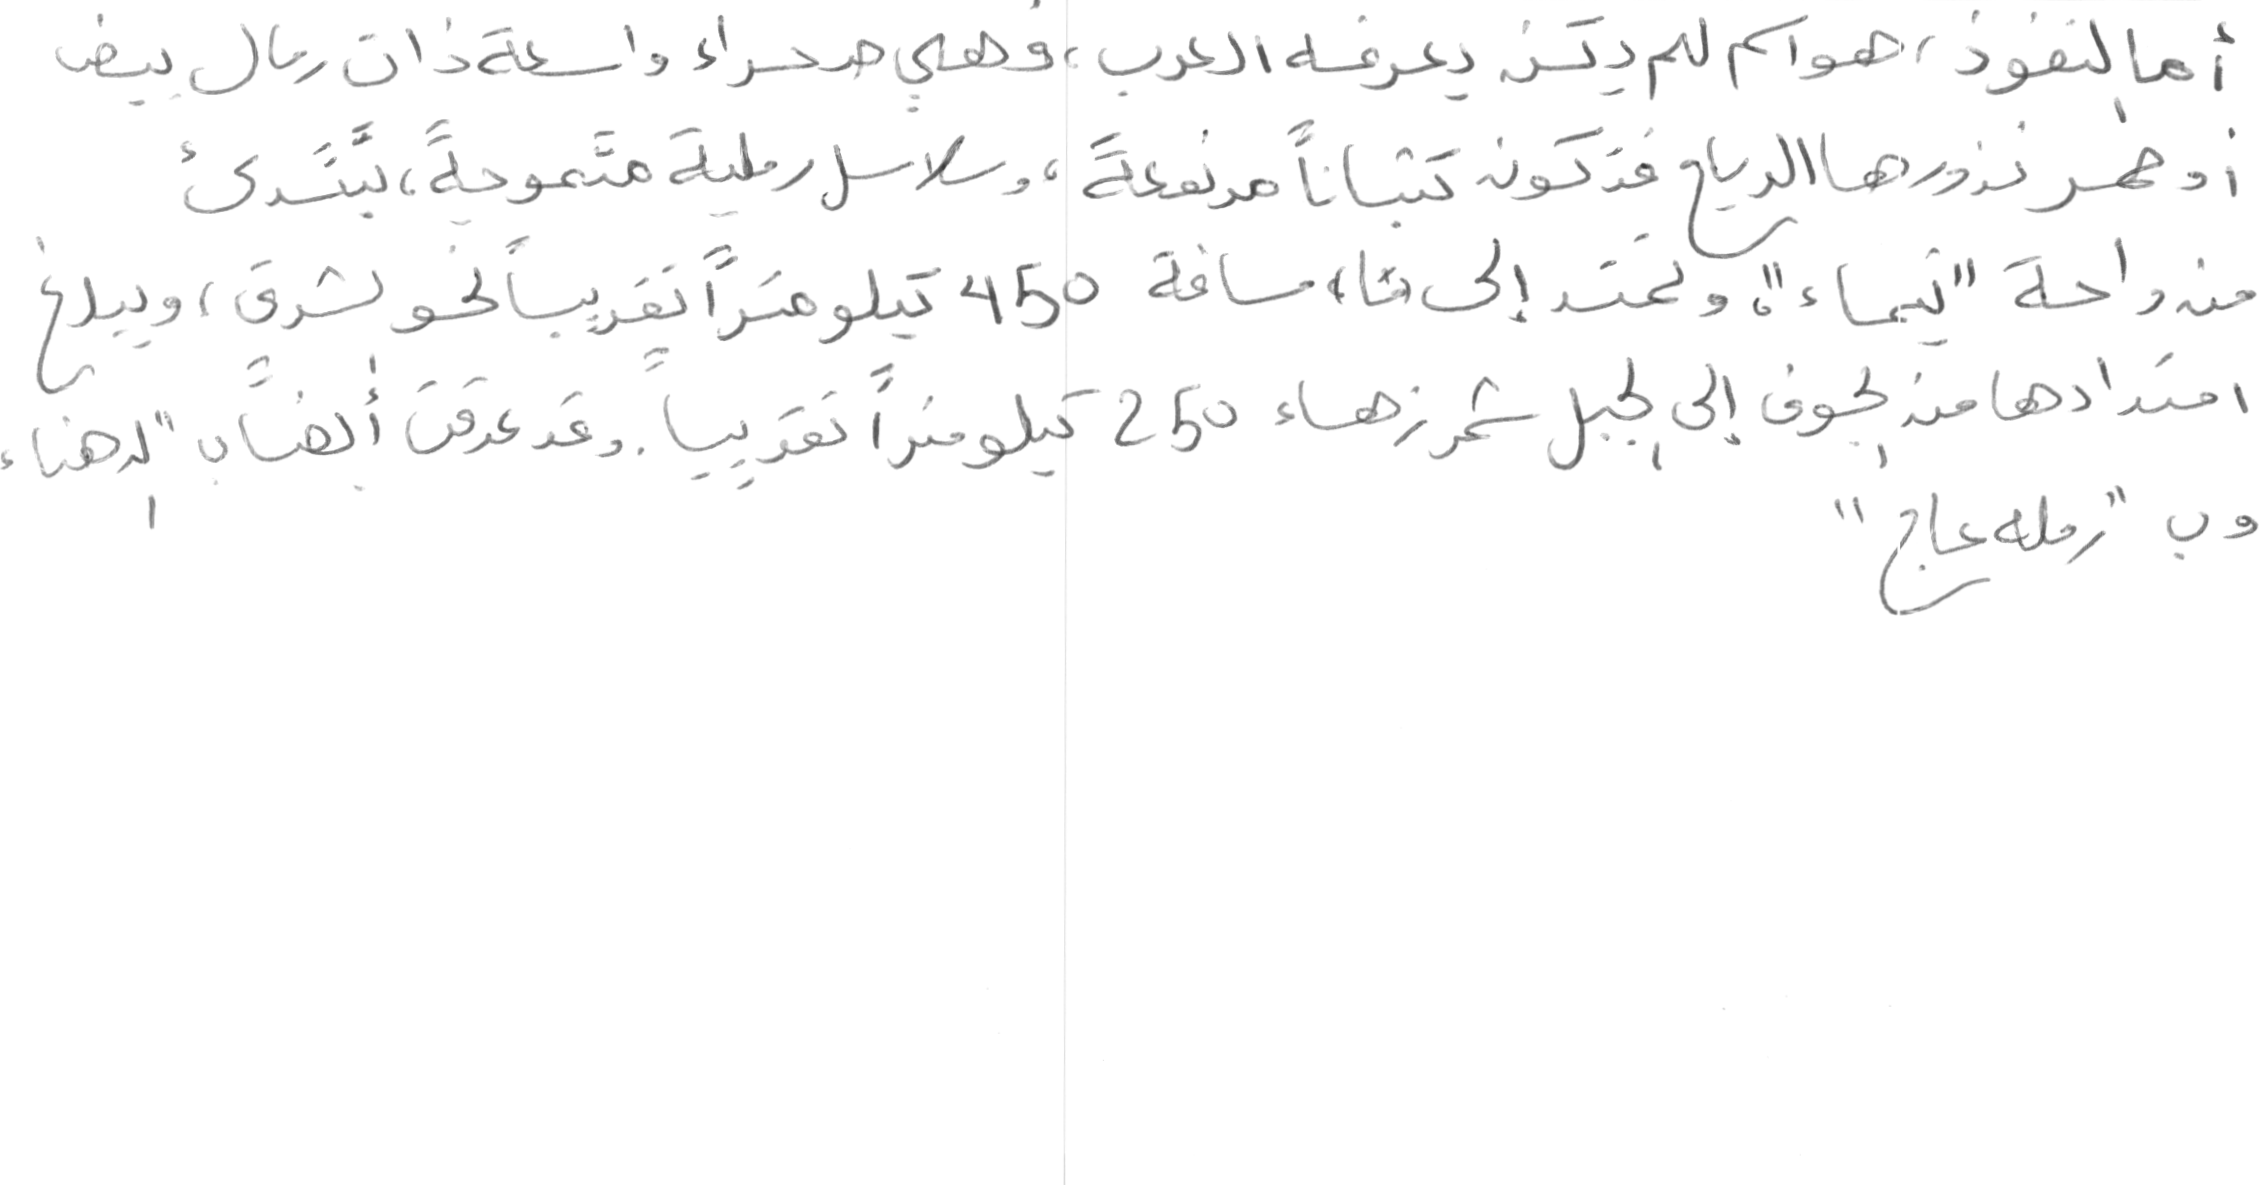 أما النفوذ، هو اسم لم يكن يعرفه العرب، فهي صحراء واسعة ذات رمال بيض
أو حمر تذورها الرياح فتكون كثباناً مرتفعة، وسلاسل رملية متموجةً، يبتدئ
من واحة "تيماء"، وتمتد إلى مسافة 450 كيلو متراً تقريباً نحو لشرق، ويبلغ
امتدادها من الجوف إلى الجبل شمر زهاء 250 كيلو متراً تقريباً. وقد عرفت أيضاً ب "الدهناء
وب "رمله عالج"